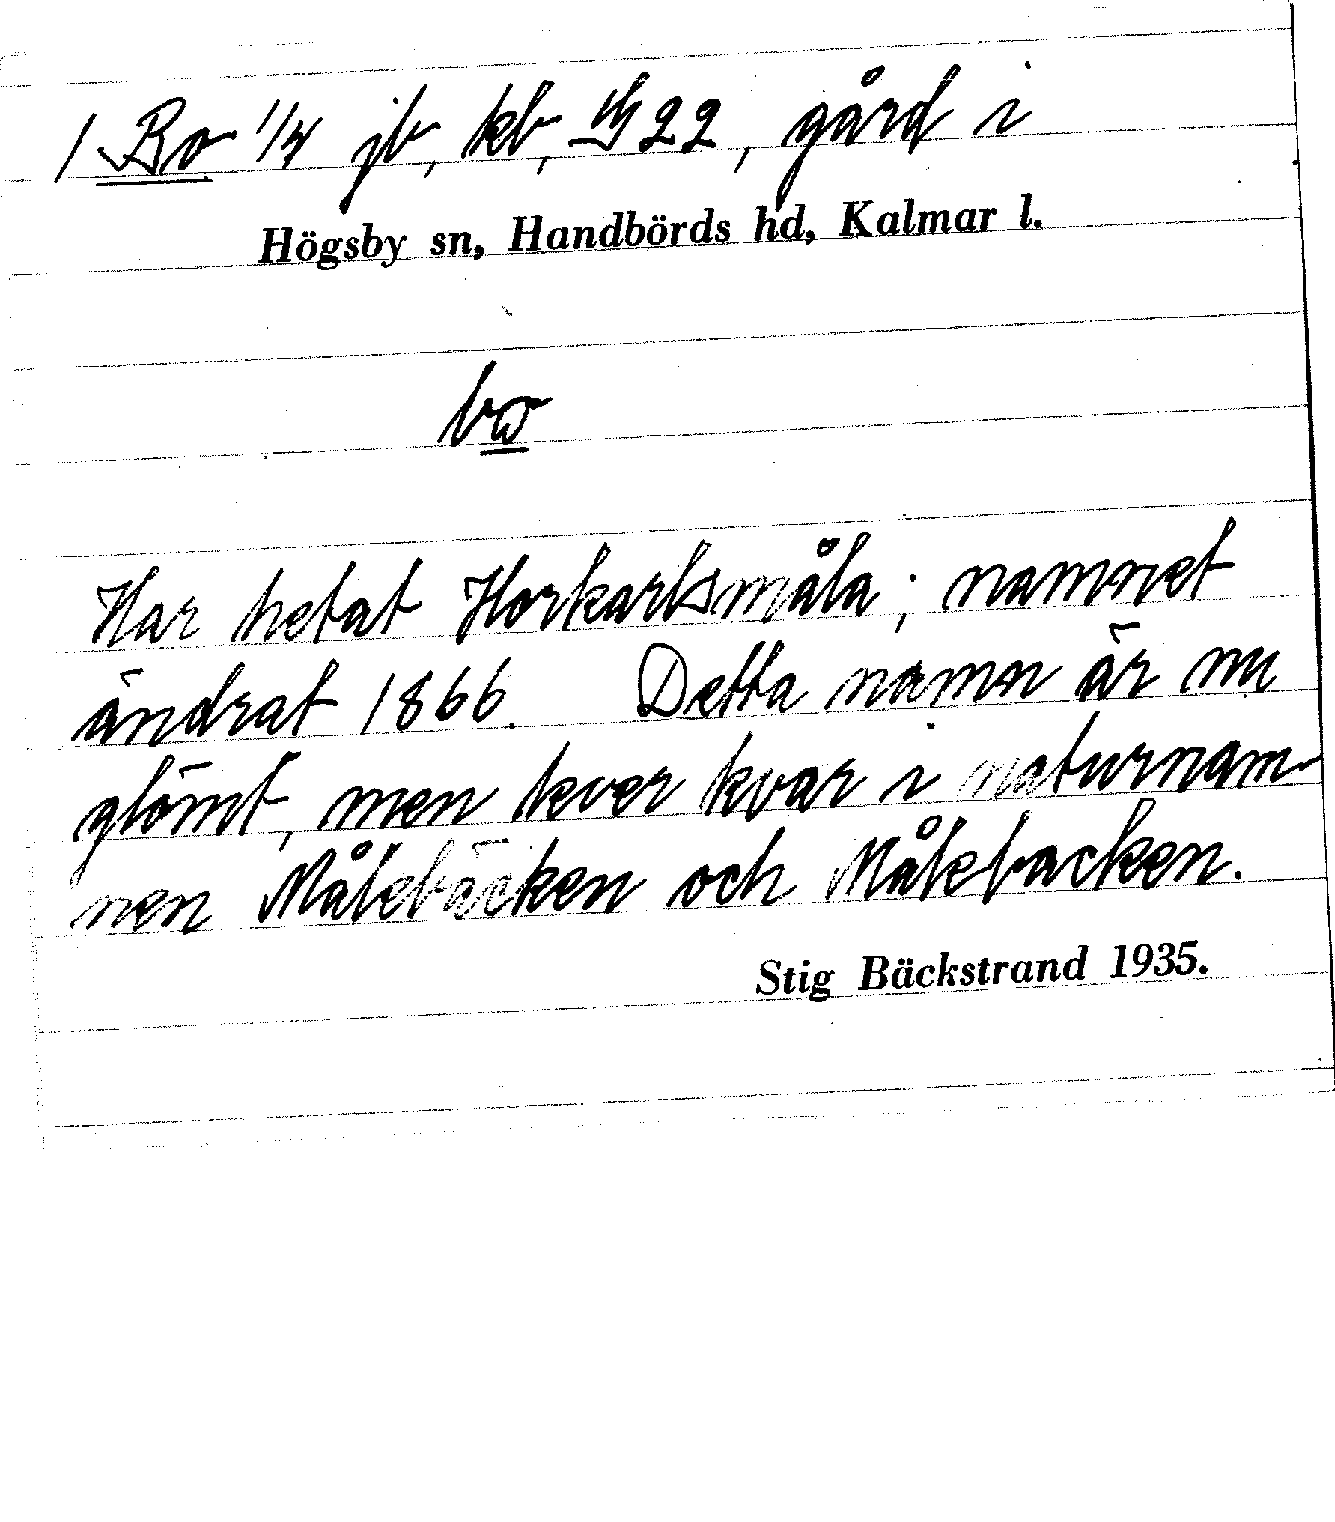 1 Bo 1/4 jb, kb, 22, gård i
Högsby sn, Handbörds hd, Kalmar l.
bo
Har hetat Horkarlsmåla; namnet
ändrat 1866. Detta namn är nu
glömt, men lever kvar i naturnam-
nen Målebäcken och Målebacken.
Stig Bäckstrand 1935.